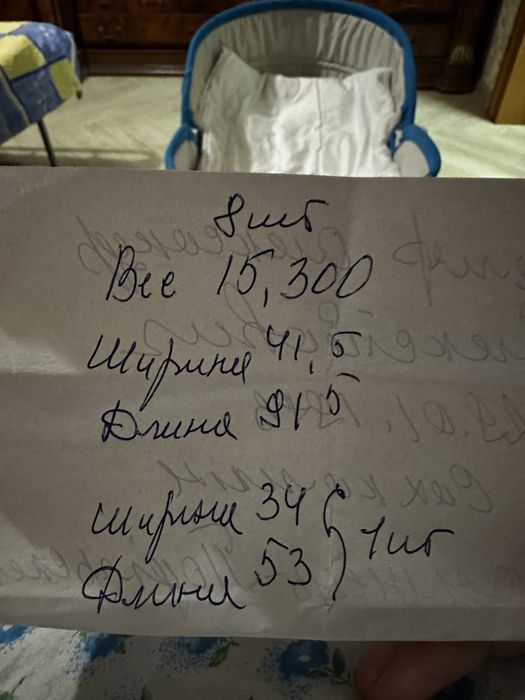 8 шт
Вес 15,300
Ширина 41,5
Длина 91,5
Ширина 34
Длина 53 } 1 шт